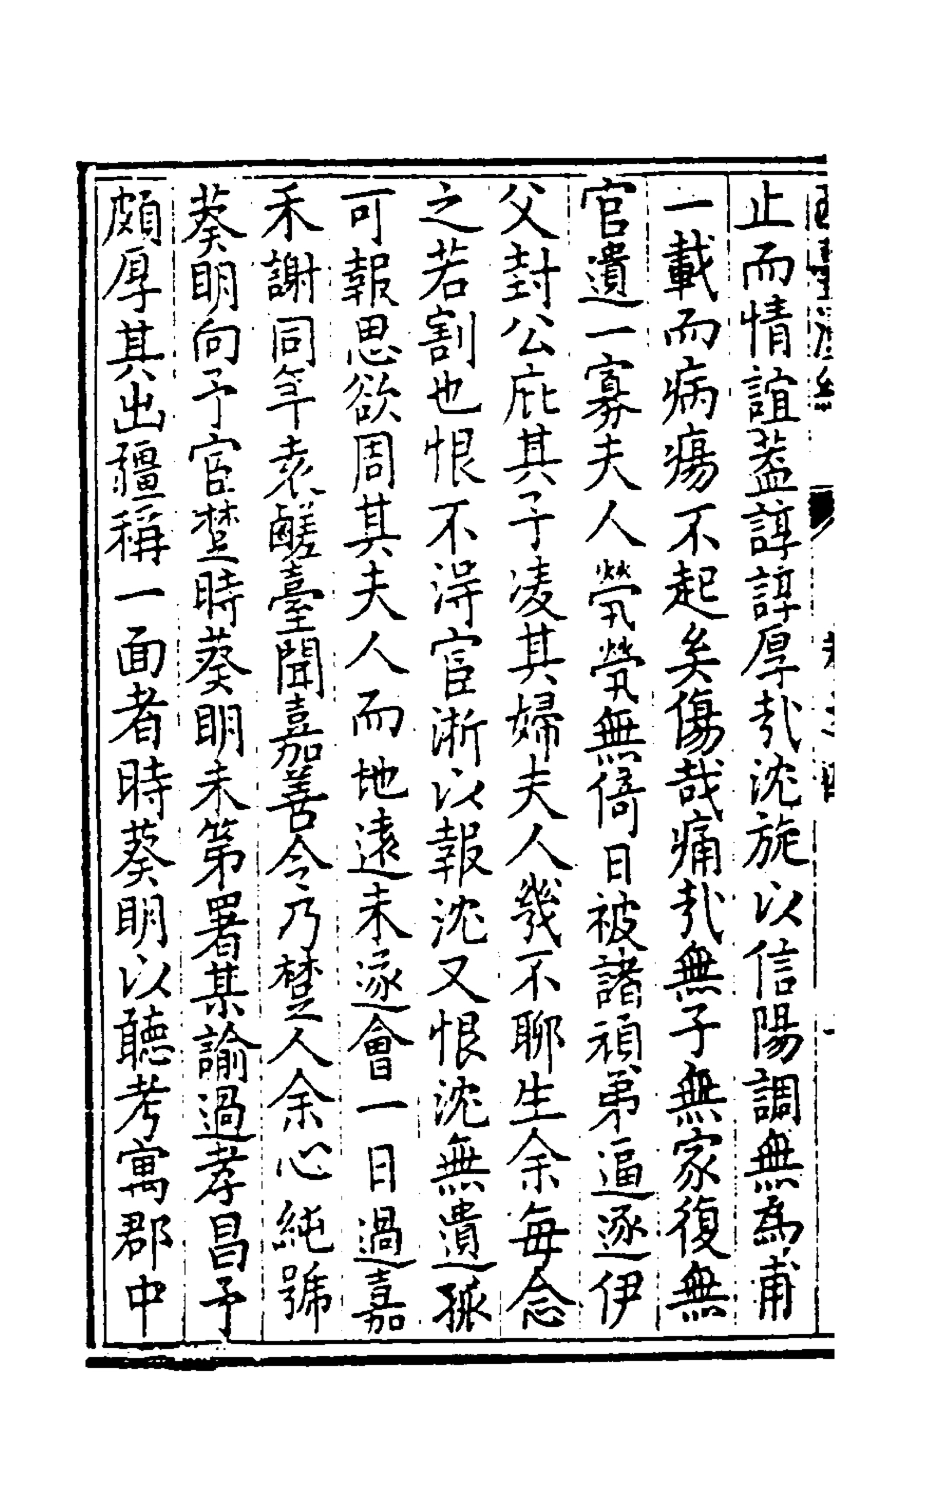 止而情誼葢諄諄厚㢤沈旋以信陽調無為甫
一載而病瘍不起矣傷哉痛㢤無子無家復無
官遺一寡夫人煢煢無倚日被諸頑弟逼逐伊
父封公庇其子凌其婦夫人幾不聊生余每念
之若割也恨不得官淅以報沈又恨沈無遺孤
可報思欲周其夫人而地遠未遂會一日過嘉
禾謝同年袁鹺臺聞嘉善令乃楚人余心純號
葵明向予宦楚時葵明未第署某諭過孝昌予
頗厚其出疆稱一面者時葵明以聽考寓郡中